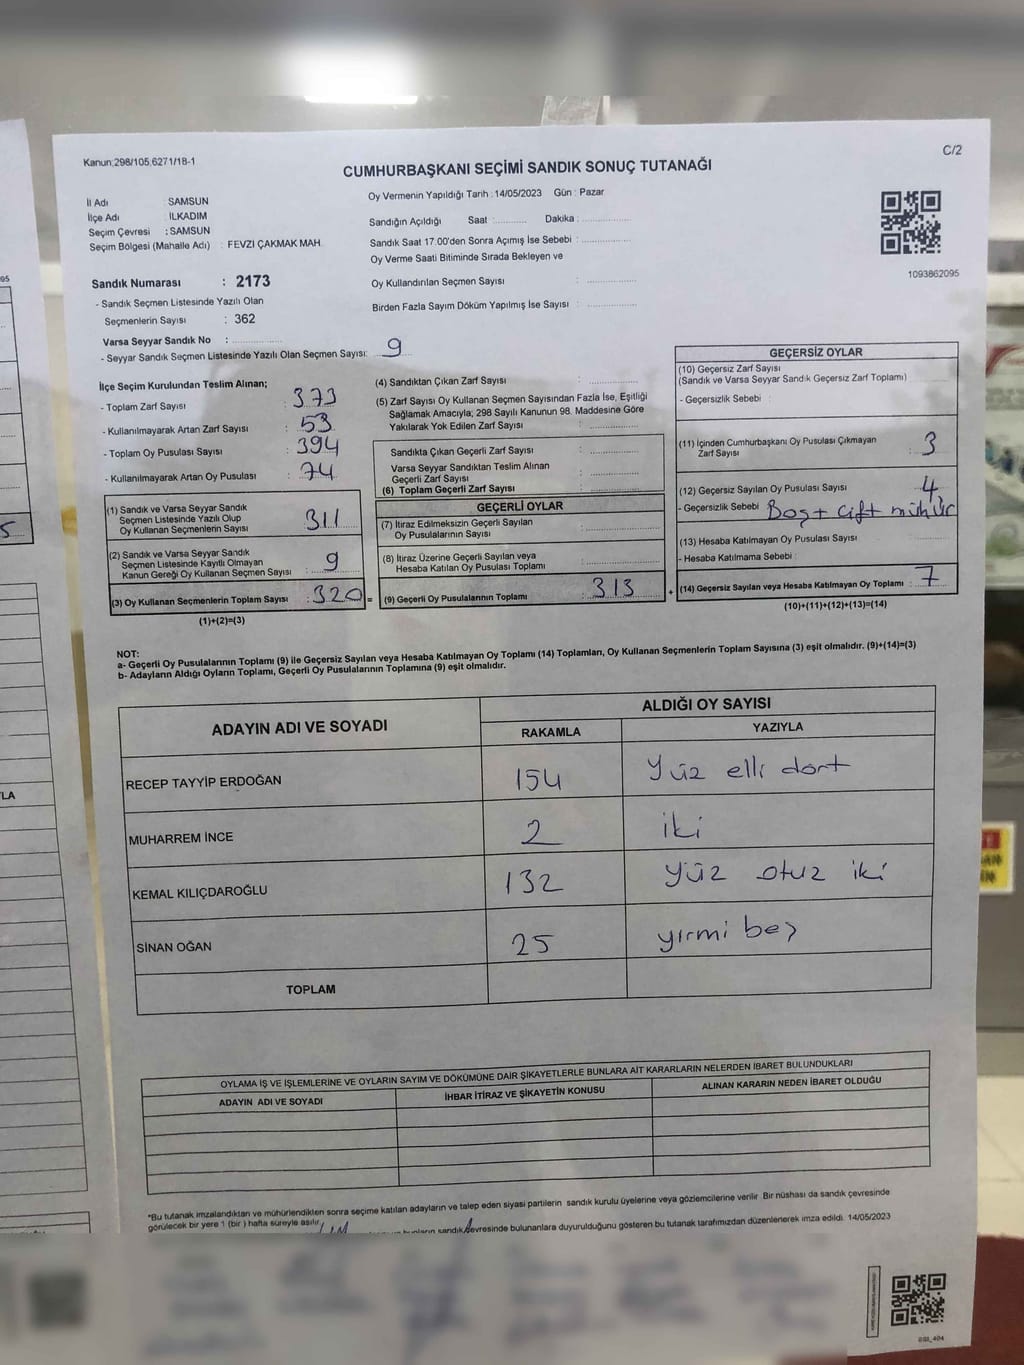 Kanun;298/105,6271/18-1
C/2
CUMHURBAŞKANI SEÇİMİ SANDIK SONUÇ TUTANAĞI
Oy Vermenin Yapıldığı Tarih : 14/05/2023 Gün : Pazar
İl Adı : SAMSUN
İlçe Adı : İLKADIM
Seçim Çevresi : SAMSUN
Seçim Bölgesi (Mahalle Adı) : FEVZİ ÇAKMAK MAH.
Sandığın Açıldığı Saat :........... Dakika :...............
Sandık Saat 17.00'den Sonra Açımış İse Sebebi :...............
Oy Verme Saati Bitiminde Sırada Bekleyen ve
Oy Kullandırılan Seçmen Sayısı :...............
Birden Fazla Sayım Döküm Yapılmış İse Sayısı :...............
1093862095
Sandık Numarası : 2173
- Sandık Seçmen Listesinde Yazılı Olan
Seçmenlerin Sayısı : 362
Varsa Seyyar Sandık No :...............
- Seyyar Sandık Seçmen Listesinde Yazılı Olan Seçmen Sayısı: 9
İlçe Seçim Kurulundan Teslim Alınan;
- Toplam Zarf Sayısı : 373
- Kullanılmayarak Artan Zarf Sayısı : 53
- Toplam Oy Pusulası Sayısı : 394
- Kullanılmayarak Artan Oy Pusulası : 74
(1) Sandık ve Varsa Seyyar Sandık
Seçmen Listesinde Yazılı Olup
Oy Kullanan Seçmenlerin Sayısı : 311
(2) Sandık ve Varsa Seyyar Sandık
Seçmen Listesinde Kayıtlı Olmayan
Kanun Gereği Oy Kullanan Seçmen Sayısı : 9
(3) Oy Kullanan Seçmenlerin Toplam Sayısı : 320 =
(1)+(2)=(3)
(4) Sandıktan Çıkan Zarf Sayısı :...............
(5) Zarf Sayısı Oy Kullanan Seçmen Sayısından Fazla İse, Eşitliği
Sağlamak Amacıyla; 298 Sayılı Kanunun 98. Maddesine Göre
Yakılarak Yok Edilen Zarf Sayısı :...............
Sandıkta Çıkan Geçerli Zarf Sayısı :...............
Varsa Seyyar Sandıktan Teslim Alınan
Geçerli Zarf Sayısı :...............
(6) Toplam Geçerli Zarf Sayısı :...............
GEÇERLİ OYLAR
(7) İtiraz Edilmeksizin Geçerli Sayılan
Oy Pusulalarının Sayısı :...............
(8) İtiraz Üzerine Geçerli Sayılan veya
Hesaba Katılan Oy Pusulası Toplamı :...............
(9) Geçerli Oy Pusulalarının Toplamı : 313 +
GEÇERSİZ OYLAR
(10) Geçersiz Zarf Sayısı
(Sandık ve Varsa Seyyar Sandık Geçersiz Zarf Toplamı)
- Geçersizlik Sebebi :
(11) İçinden Cumhurbaşkanı Oy Pusulası Çıkmayan
Zarf Sayısı : 3
(12) Geçersiz Sayılan Oy Pusulası Sayısı : 4
- Geçersizlik Sebebi Boş+ çift mühür
(13) Hesaba Katılmayan Oy Pusulası Sayısı :
- Hesaba Katılmama Sebebi :
(14) Geçersiz Sayılan veya Hesaba Katılmayan Oy Toplamı : 7
(10)+(11)+(12)+(13)=(14)
NOT:
a- Geçerli Oy Pusulalarının Toplamı (9) ile Geçersiz Sayılan veya Hesaba Katılmayan Oy Toplamı (14) Toplamları, Oy Kullanan Seçmenlerin Toplam Sayısına (3) eşit olmalıdır. (9)+(14)=(3)
b- Adayların Aldığı Oyların Toplamı, Geçerli Oy Pusulalarının Toplamına (9) eşit olmalıdır.
ADAYIN ADI VE SOYADI
ALDIĞI OY SAYISI
RAKAMLA YAZIYLA
RECEP TAYYİP ERDOĞAN 154 Yüz elli dört
MUHARREM İNCE 2 iki
KEMAL KILIÇDAROĞLU 132 yüz otuz iki
SİNAN OĞAN 25 yirmi beş
TOPLAM
OYLAMA İŞ VE İŞLEMLERİNE VE OYLARIN SAYIM VE DÖKÜMÜNE DAİR ŞİKAYETLERLE BUNLARA AİT KARARLARIN NELERDEN İBARET BULUNDUKLARI
ADAYIN ADI VE SOYADI İHBAR İTİRAZ VE ŞİKAYETİN KONUSU ALINAN KARARIN NEDEN İBARET OLDUĞU
*Bu tutanak imzalandıktan ve mühürlendikten sonra seçime katılan adayların ve talep eden siyasi partilerin sandık kurulu üyelerine veya gözlemcilerine verilir. Bir nüshası da sandık çevresinde
görülecek bir yere 1 (bir ) hafta süreyle asılır.
bunların sandık çevresinde bulunanlara duyurulduğunu gösteren bu tutanak tarafımızdan düzenlenerek imza edildi. 14/05/2023